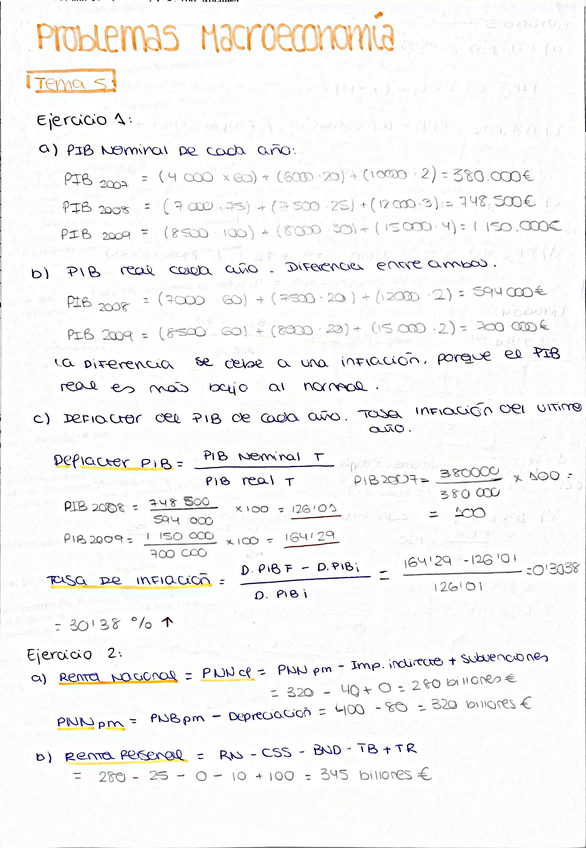 Problemas Macroeconomía
Tema 5
Ejercicio 1:
a) PIB Nominal de cada año:
PIB 2007 = (4 000 × 60) + (6000 · 20) + (10000 · 2) = 380.000€
PIB 2008 = (7 000 · 75) + (7 500 · 25) + (12 000 · 3) = 748.500€
PIB 2009 = (8500 · 100) + (8000 · 30) + (15000 · 4) = 1.150.000€
b) PIB real cada año. Diferencia entre ambos.
PIB 2008 = (7000 · 60) + (7500 · 20) + (12000 · 2) = 594 000€
PIB 2009 = (8500 · 60) + (8000 · 20) + (15 000 · 2) = 700 000€
La diferencia se debe a una inflación, porque el PIB
real es más bajo al normal.
c) Deflactor del PIB de cada año. Tasa inflación del último
año.
Deflacter PIB = PIB Nominal T / PIB real T
PIB2007 = 380000 / 380 000 × 100 =
= 100
PIB 2008 = 748 500 / 594 000 × 100 = 126'01
PIB 2009 = 1 150 000 / 700 000 × 100 = 164'29
Tasa de inflación = D. PIB F - D. PIB i / D. PIB i = 164'29 - 126'01 / 126'01 = 0'3038
= 30'38 % ↑
Ejercicio 2:
a) Renta Nacional = PNN cf = PNN pm - Imp. indirecto + Subvenciones
= 320 - 40 + 0 = 280 billones €
PNN pm = PNB pm - Depreciación = 400 - 80 = 320 billones €
b) Renta Personal = RN - CSS - BND - TB + TR
= 280 - 25 - 0 - 10 + 100 = 345 billones €